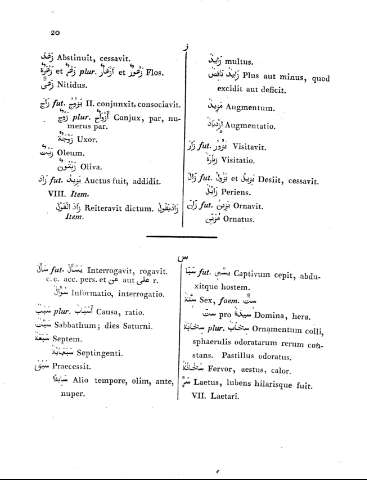 20
ز
زهد Abstinuit, cessavit.
زهرة et زهر plur. أزهار et زهور Flos.
زهى Nitidus.
زاج fut. يزوج II. conjunxit. consociavit.
زوج plur. أزواج Conjux, par, nu-
merus par.
زوجة Uxor.
زيت Oleum.
زيتون Oliva.
زاد fut. يزيد Auctus fuit, addidit.
VIII. Item.
زاد القول Reiteravit dictum.
Item.
زايد multus.
زايد ناقص Plus aut minus, quod
excidit aut deficit.
مزيد Augmentum.
ازدياد Augmentatio.
زار fut. يزور Visitavit.
زيارة Visitatio.
زال fut. يزول et يزيل Desiit, cessavit.
زايل Periens.
زان fut. يزين Ornavit.
مزين Ornatus.
س
سأل fut. يسأل Interrogavit, rogavit.
c. c. acc. pers. et عن aut على r.
سؤال Informatio, interrogatio.
سبب plur. أسباب Causa, ratio.
سبت Sabbathum; dies Saturni.
سبعة Septem.
سبعماية Septingenti.
سبق Praecessit.
سابقا Alio tempore, olim, ante,
nuper.
سبا fut. يسبى Captivum cepit, abdu-
xitque hostem.
ستة Sex, foem. ست
ست pro سيدة Domina, hera.
سخابة plur. سخاب Ornamentum colli,
sphaerulis odoratarum rerum con-
stans. Pastillus odoratus.
سخانة Fervor, aestus, calor.
سر Laetus, lubens hilarisque fuit.
VII. Laetari.